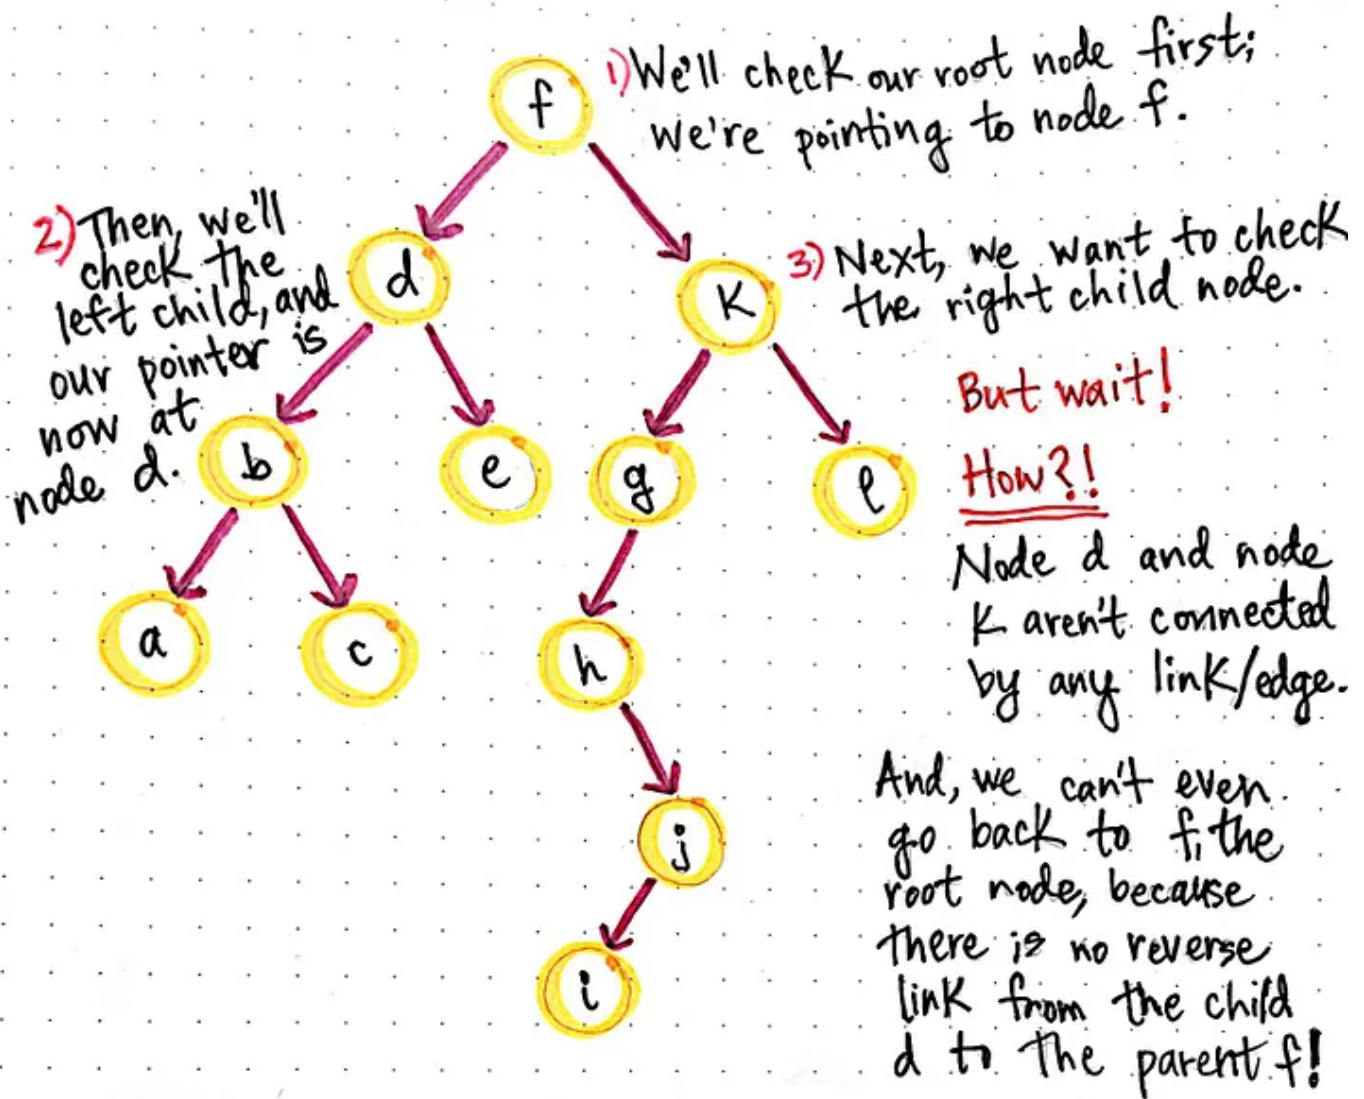 f
1) We'll check our root node first;
we're pointing to node f.
2) Then, we'll
check the
left child, and
our pointer is
now at
node d.
d
k
3) Next, we want to check
the right child node.
But wait!
How?!
b
e
g
l
Node d and node
k aren't connected
by any link/edge.
a
c
h
And, we can't even
go back to f, the
root node, because
there is no reverse
link from the child
d to the parent f!
j
i